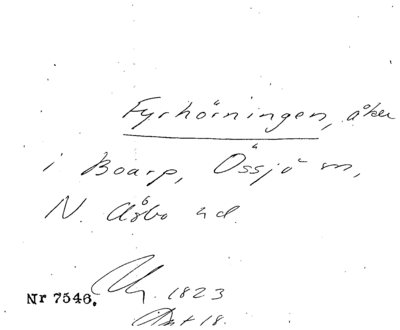 Fyrhörningen, åker
i Boarp, Össjö sn,
N. Åsbo hd.
Nr 7546. 1823